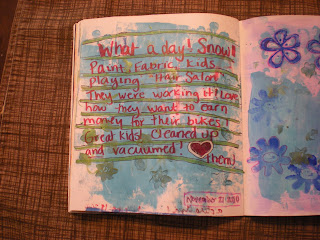 What a day! Snow!
Paint Fabric Kids
Playing "Hair Salon"
They were working it! Love
how they want to earn
money for their bikes!
Great kids! Cleaned up
and vacuumed!
them!